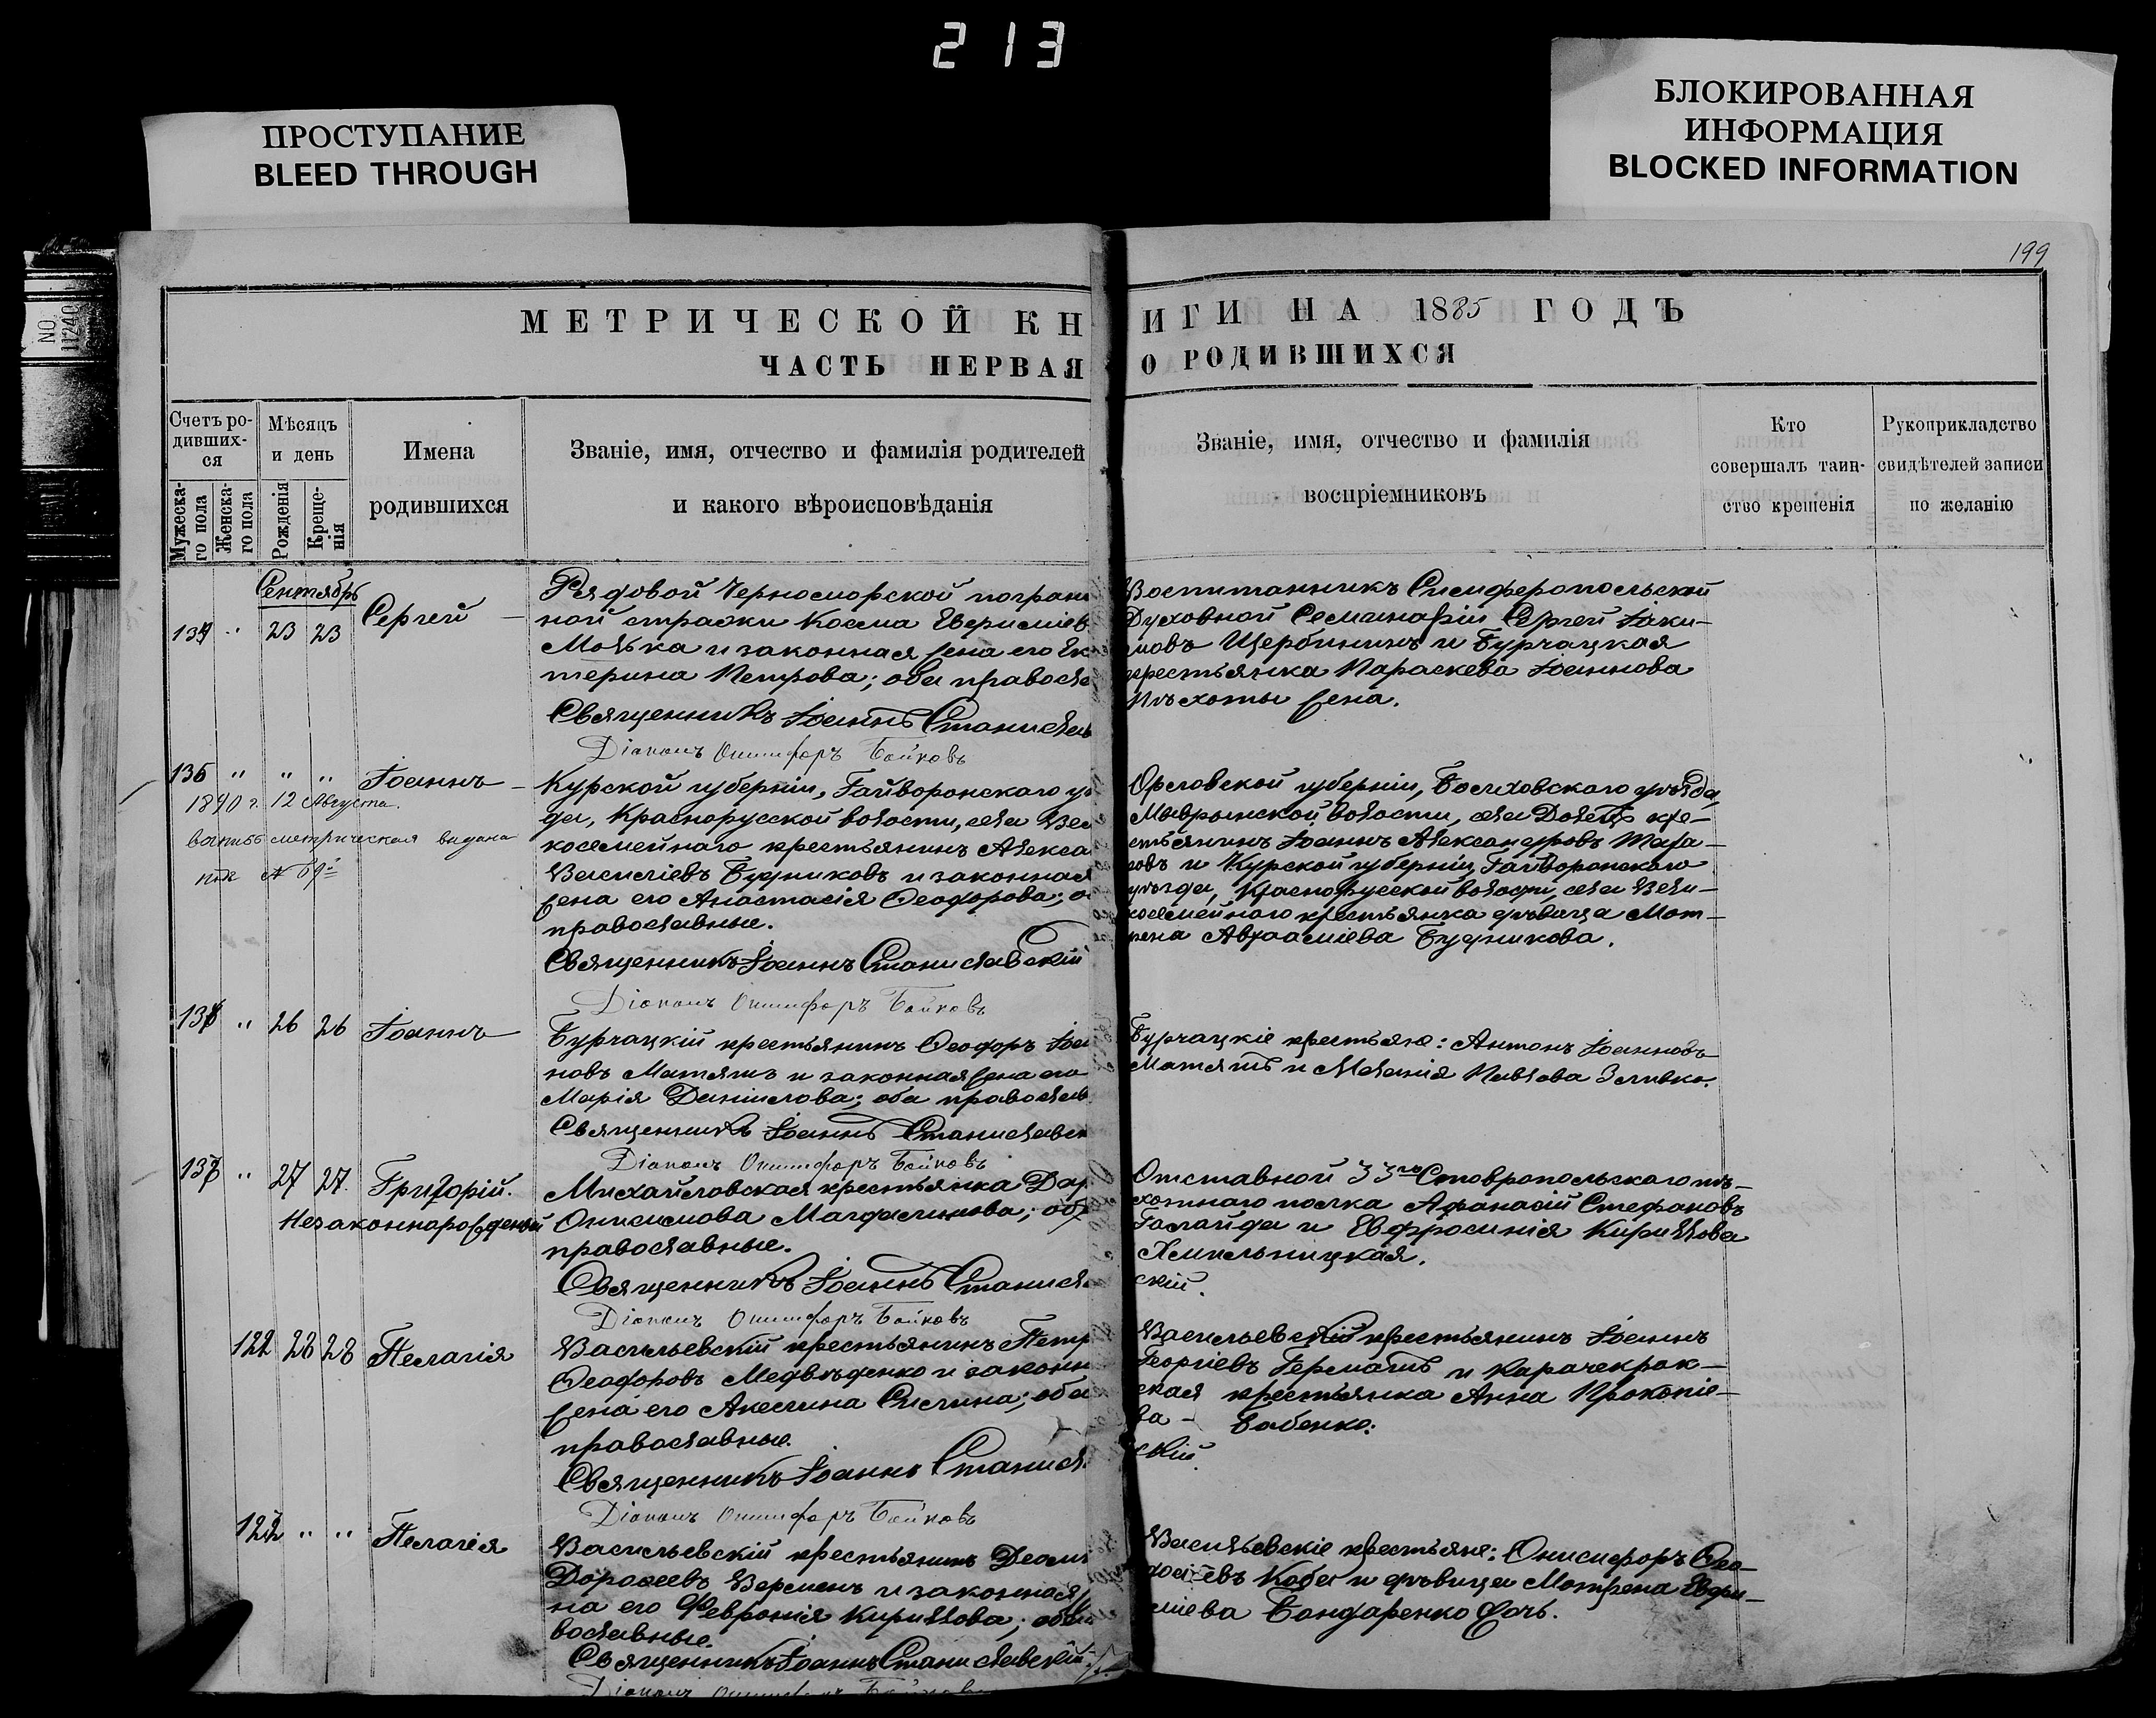 213
ПРОСТУПАНИЕ
BLEED THROUGH
БЛОКИРОВАННАЯ
ИНФОРМАЦИЯ
BLOCKED INFORMATION
NO
11240
199
МЕТРИЧЕСКОЙ КН
ИГИ НА 1885 ГОДЪ
ЧАСТЬ ПЕРВАЯ
О РОДИВШИХСЯ
Счетъ ро-
дивших-
ся
Мужеска-
го пола
Женска-
го пола
Мѣсяцъ
и день
Рожденія
Креще-
нія
Имена
родившихся
Званіе, имя, отчество и фамилія родителей
и какого вѣроисповѣданія
Званіе, имя, отчество и фамилія
воспріемниковъ
Кто
совершалъ таин-
ство крещенія
Рукоприкладство
свидѣтелей записи
по желанію
Сентябрь
23 23
Сергей
Рядовой Черноморской погран
ной стражи Косма
и законная жена его Ек
терина Петрова; оба правосла
Священникъ Іоаннъ Станислав
Діаконъ Онисифоръ Бойковъ
Воспитанникъ Симферопольской
Духовной Семинаріи Сергей Іаки-
мовъ Щербининъ и Бурчацкая
крестьянка Параскева Іоаннова
Пѣхоты жена.
135 " " " Іоаннъ
1890 г. 12 Августа.
метрическая выдана
№ 69
Курской губерніи, Гайворонскаго уѣ
да, Краснорусской волости, села Вел
косемейнаго крестьянинъ Алекса
Василіевъ Будниковъ и законная
жена его Анастасія Ѳеодорова; о
православные.
Священникъ Іоаннъ Станиславскій
Діаконъ Онисифоръ Бойковъ
Орловской губерніи, Болховскаго уѣзда,
волости, села крe-
стьянинъ Іоаннъ Александровъ
и Курской губерніи, Гайворонскаго
уѣзда, Краснорусской волости, села Вели-
косемейнаго крестьянка дѣвица Мот-
рена Авраамiева Будникова.
" 26 26 Іоаннъ
Бурчацкій крестьянинъ Ѳеодоръ Іоан
новъ Матяшъ и законная жена его
Марія Даніилова; оба православ
Священникъ Іоаннъ Станиславск
Діаконъ Онисифоръ Бойковъ
Бурчацкіе крестьяне: Антонъ Іоанновъ
Матяшъ и Меланія Павлова Зливко.
137 " 27 27. Григорій.
Незаконнорожденный
Михайловская крестьянка Дар
Онисимова; об
православные.
Священникъ Іоаннъ Станисла
Діаконъ Онисифоръ Бойковъ
Отставной 33го Ставропольскаго пѣ-
хотнаго полка Афанасій Стефановъ
Галайда и Евфросинія Кириллова
Хмильницкая.
скій.
28 28 Пелагія
Васильевскій крестьянинъ Петр
Ѳеодоровъ Медвѣденко и законн
жена его Акелина; оба
православные.
Священникъ Іоаннъ Станисла
Діаконъ Онисифоръ Бойковъ
Васильевскій крестьянинъ Іоаннъ
Георгіевъ Гермашъ и Карачекрак-
ская крестьянка Анна Прокопіе-
ва - Бабенко.
скій.
122 " " Пелагея
Васильевскій крестьянинъ
Дороѳеевъ Веремен и законная
на его Февронія Кириллова; оба
вославные.
Священникъ Іоаннъ Станиславскій
Діаконъ Онисифоръ Бойковъ
Васильевскіе крестьяне: Онисифоръ Ѳео-
досіевъ Коба и дѣвица Мотрена Евфи-
міева Бондаренко дочь.